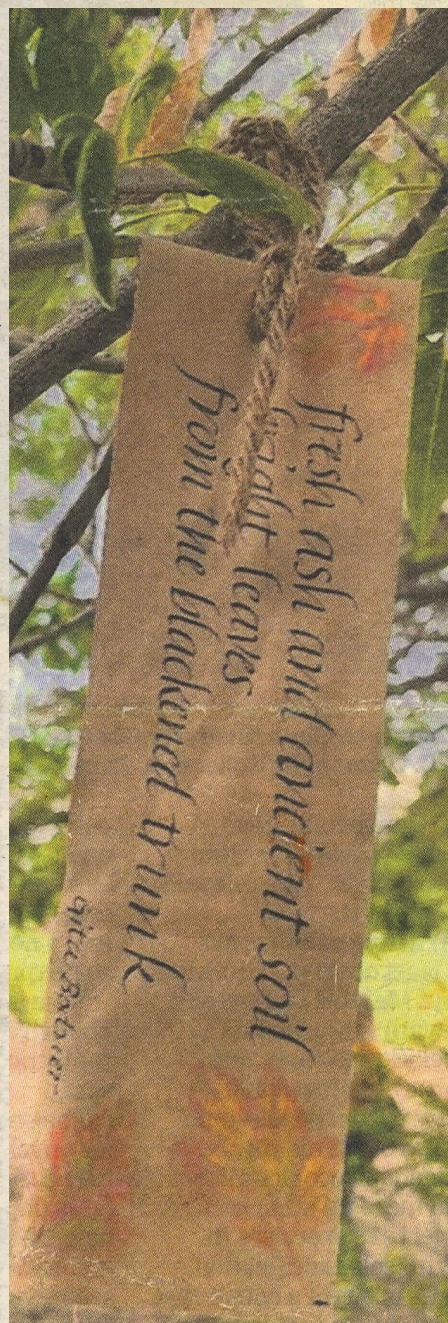 fresh ash and ancient soil
bright leaves
from the blackened trunk
Gita Bretner